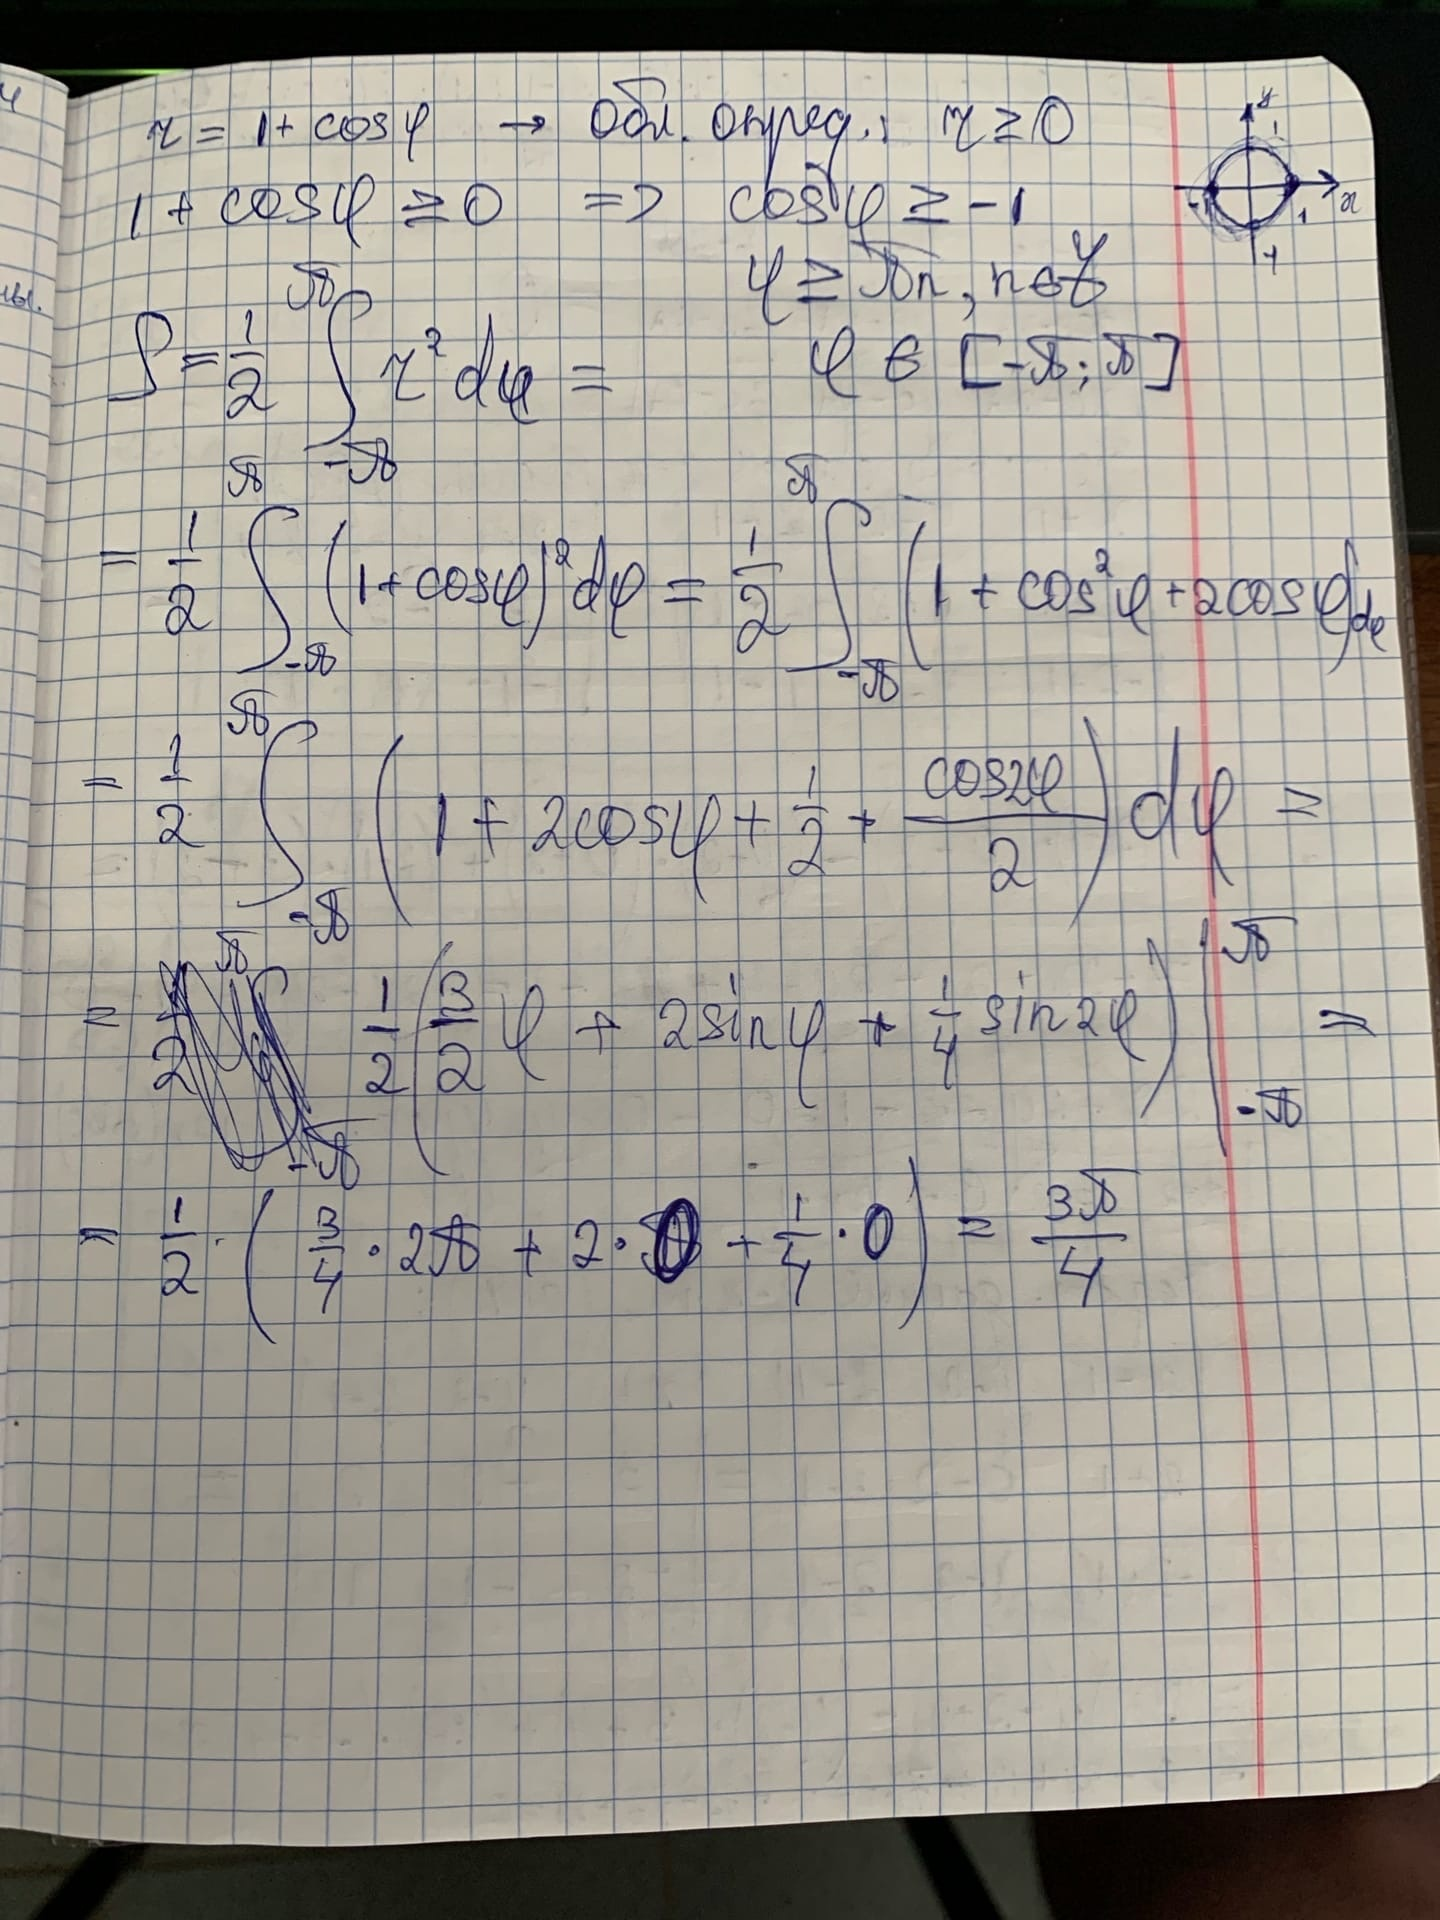 r = 1 + cosφ → обл. опред.: r ≥ 0
1 + cosφ ≥ 0 => cosφ ≥ -1
φ ≥ πn, n∈Z
S = 1/2 ∫_{-π}^{π} r² dφ = φ ∈ [-π; π]
= 1/2 ∫_{-π}^{π} (1+cosφ)² dφ = 1/2 ∫_{-π}^{π} (1 + cos²φ + 2cosφ)dφ
= 1/2 ∫_{-π}^{π} (1 + 2cosφ + 1/2 + cos2φ/2) dφ =
= 1/2 (3/2 φ + 2sinφ + 1/4 sin2φ) |_{-π}^{π} =
= 1/2 · (3/4 · 2π + 2 · 0 + 1/4 · 0) = 3π/4
y
1
-1 1 x
-1